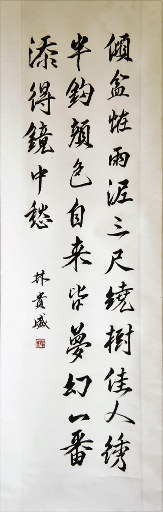 傾盆怔雨泥三尺繞樹佳人綉
半鈎顏色自来皆夢幻一番
添得鏡中愁
林貴威